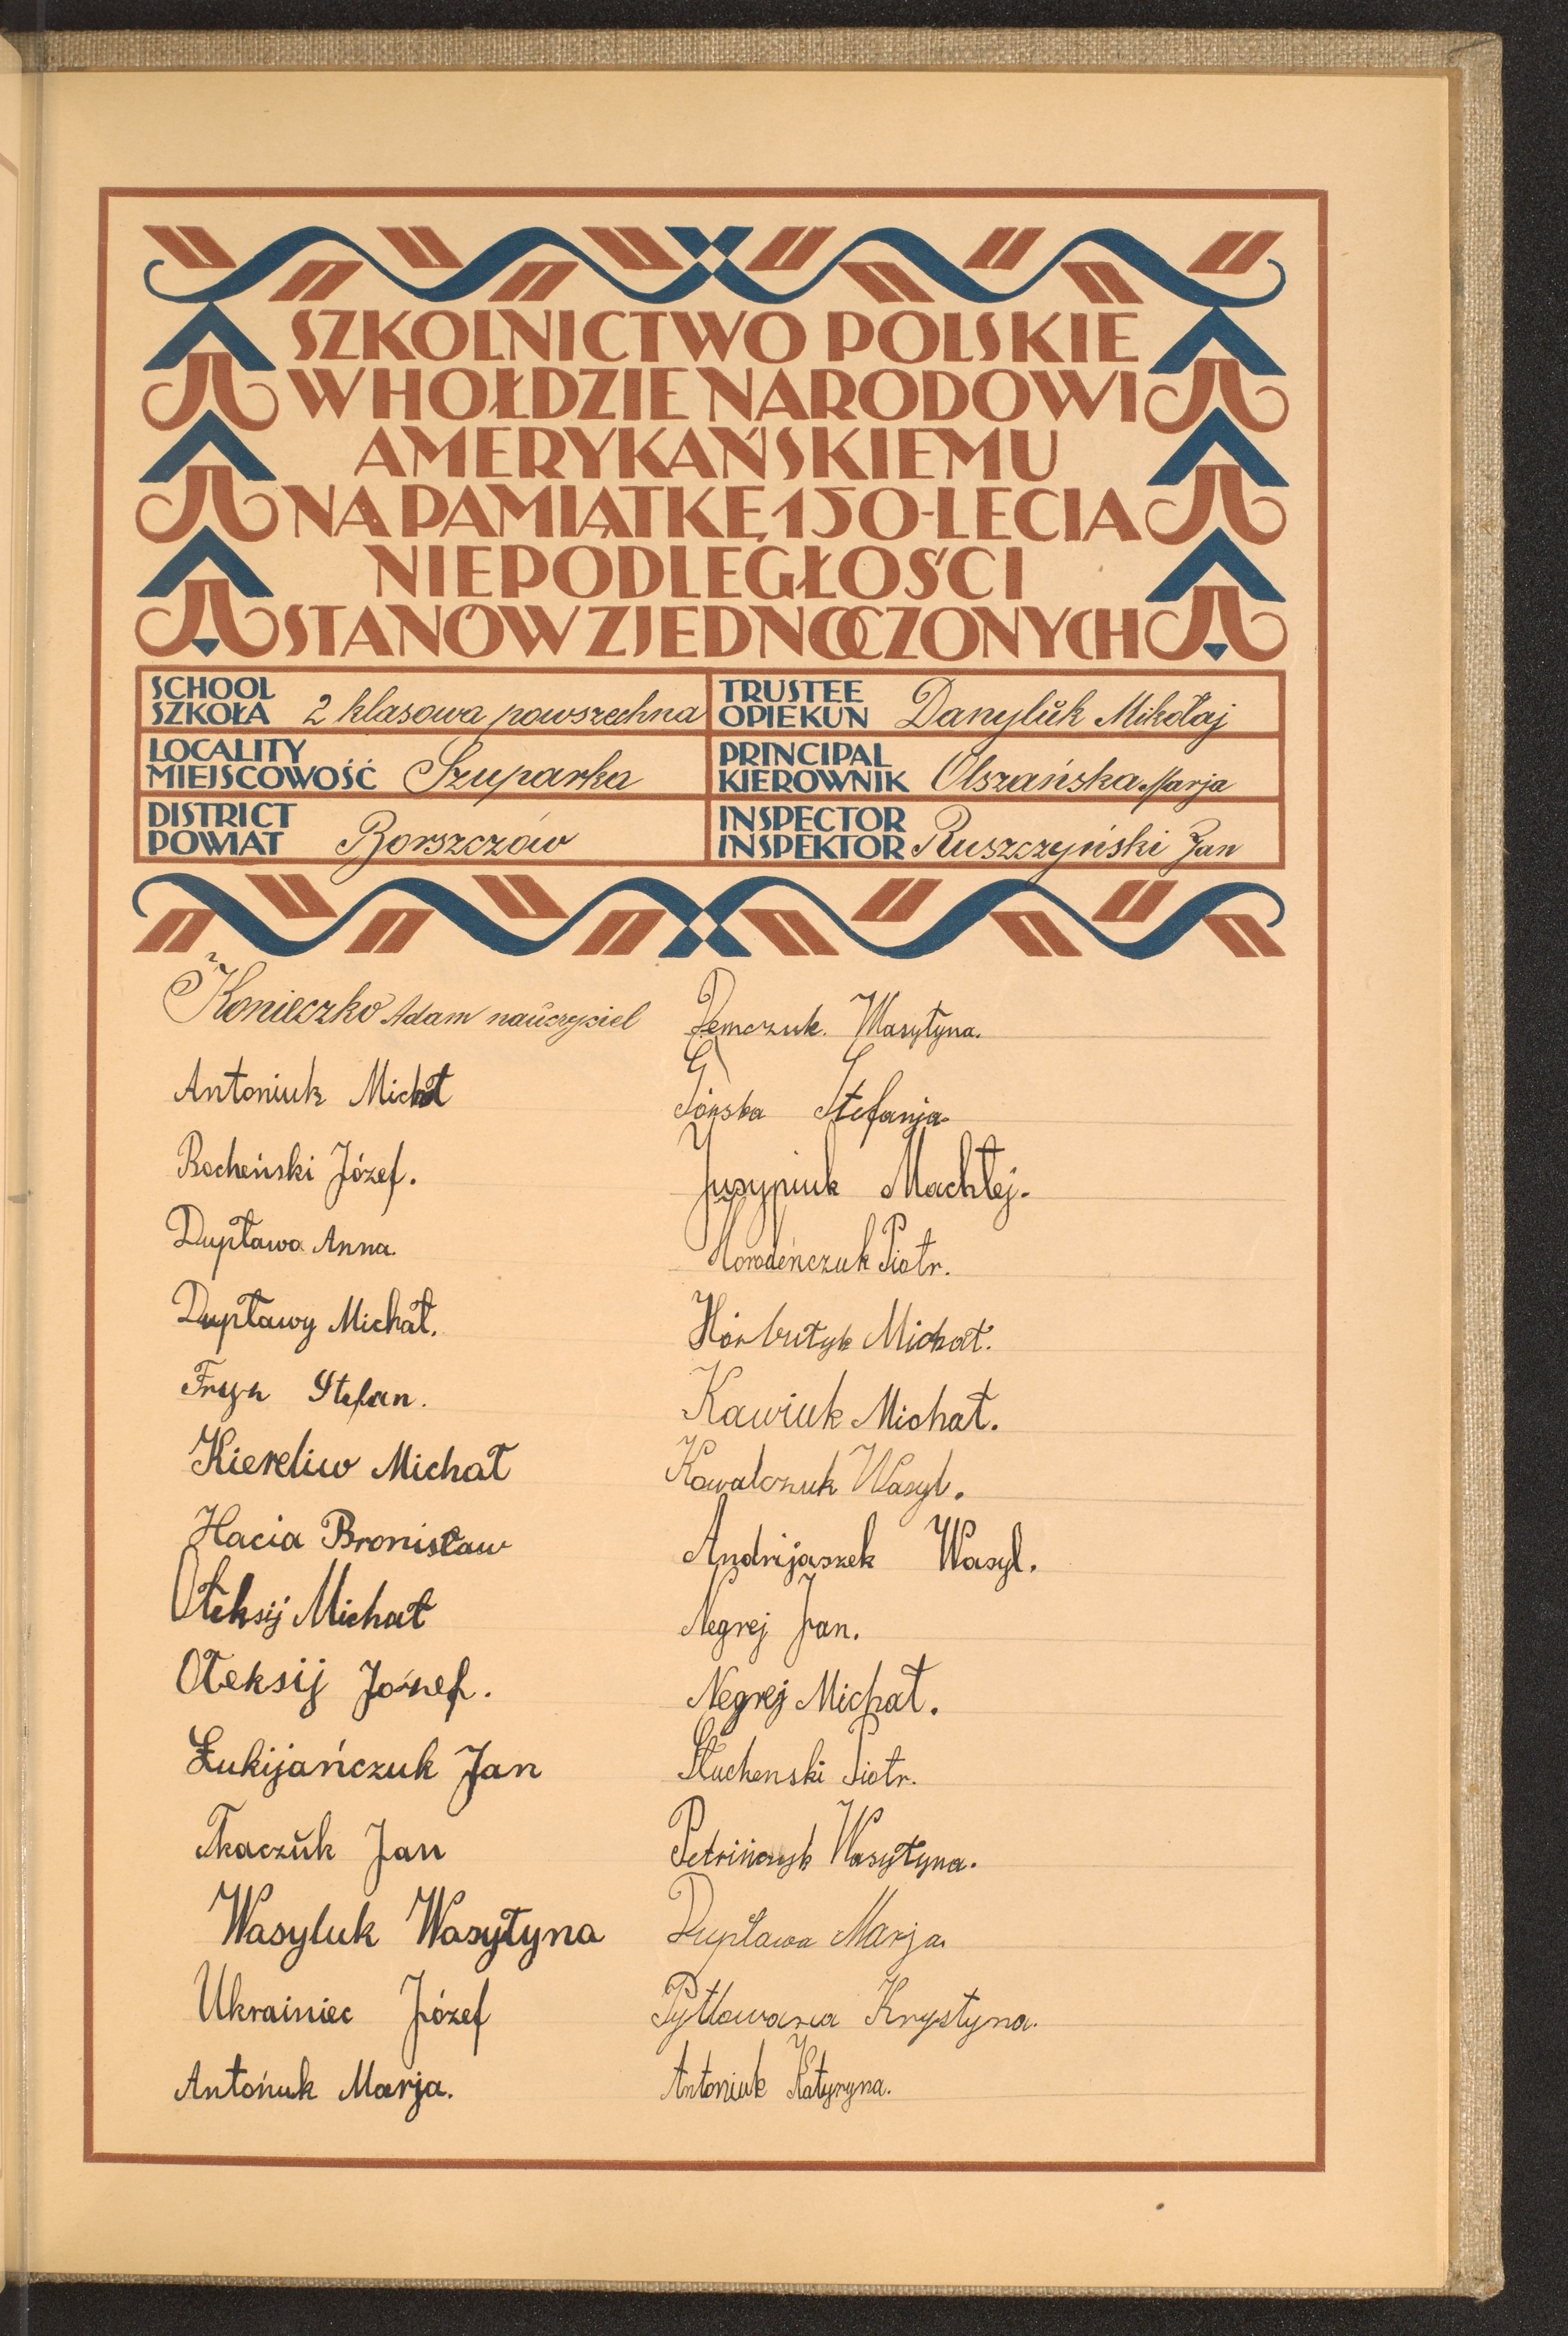 SZKOLNICTWO POLSKIE
W HOŁDZIE NARODOWI
AMERYKAŃSKIEMU
NA PAMIĄTKĘ 150-LECIA
NIEPODLEGŁOŚCI
STANÓW ZJEDNOCZONYCH
SCHOOL
SZKOŁA 2 klasowa powszechna
TRUSTEE
OPIEKUN Danylŭk Mikołaj
LOCALITY
MIEJSCOWOŚĆ Szuparka
PRINCIPAL
KIEROWNIK Olszańska Marja
DISTRICT
POWIAT Borszczów
INSPECTOR
INSPEKTOR Ruszczyński Jan
Konieczko Adam naŭczyciel
Antoniuk Michał
Bocheński Józef.
Dupława Anna
Dupławy Michał.
Fryk Stefan.
Kiereliw Michał
Hacia Bronisław
Ołeksij Michał
Ołeksij Józef.
Łukijańczuk Jan
Tkaczŭk Jan
Wasyluk Wasyłyna
Ukrainiec Józef
Antońuk Marja.
Demczuk. Wasyłyna.
Górska Stefanja.
Jusypiuk Machłej.
Horodeńczuk Piotr.
Horbutyk Michał.
Kawiuk Michał.
Kowalczuk Wasyl.
Andrijaszek Wasyl.
Negrej Jan.
Negrej Michał.
Słuchenski Piotr.
Wasyłyna.
Dupława Marja.
Pytlowana Krystyna.
Antoniuk Katyryna.